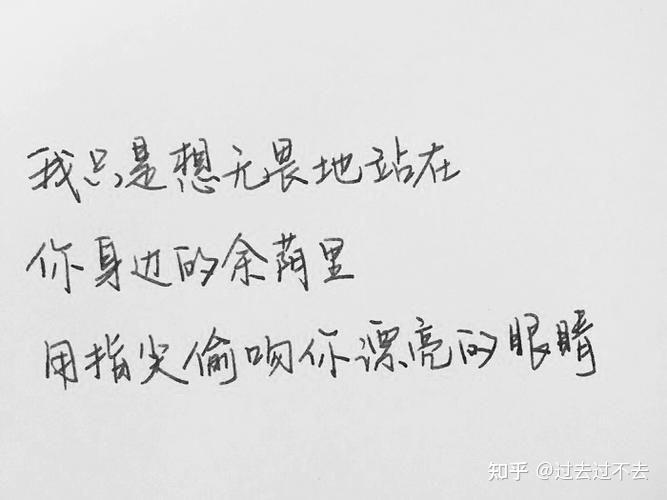 我只是想无畏地站在
你身边的余荫里
用指尖偷吻你漂亮的眼睛
知乎 @过去过不去